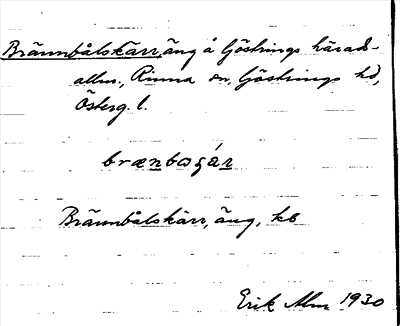 Brännbålskärr, äng å Göstrings härads-
allm., Rinna sn, Göstrings hd,
Österg. l.
Brännbålskärr, äng, kb
Erik Alm 1930